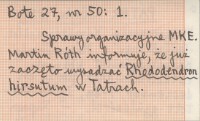 Bote 27, nr 50: 1.
Sprawy organizacyjne MKE.
Martin Róth informuje, że już
zaczęto wysadzać Rhododendron
hirsutum w Tatrach.